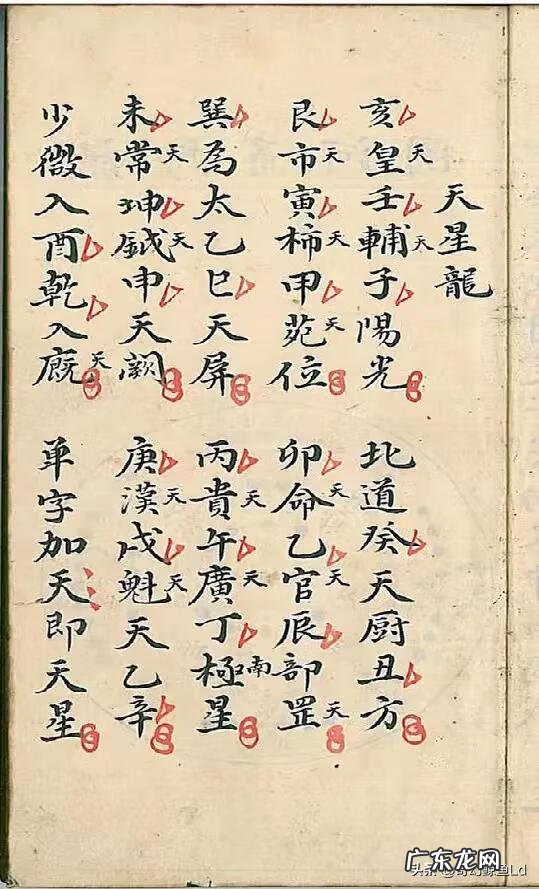 天星龍
亥皇天壬輔天子陽光
北道癸天厨丑方
艮市天寅柿天甲苑天位
卯命天乙官天辰部罡天
巽為太乙巳天屏
丙貴天午廣天丁極南星
未常天坤鉞天申天闕
庚漢天戌魁天天乙辛
少微入酉乾入廐天
单字加天即天星
广东龙网